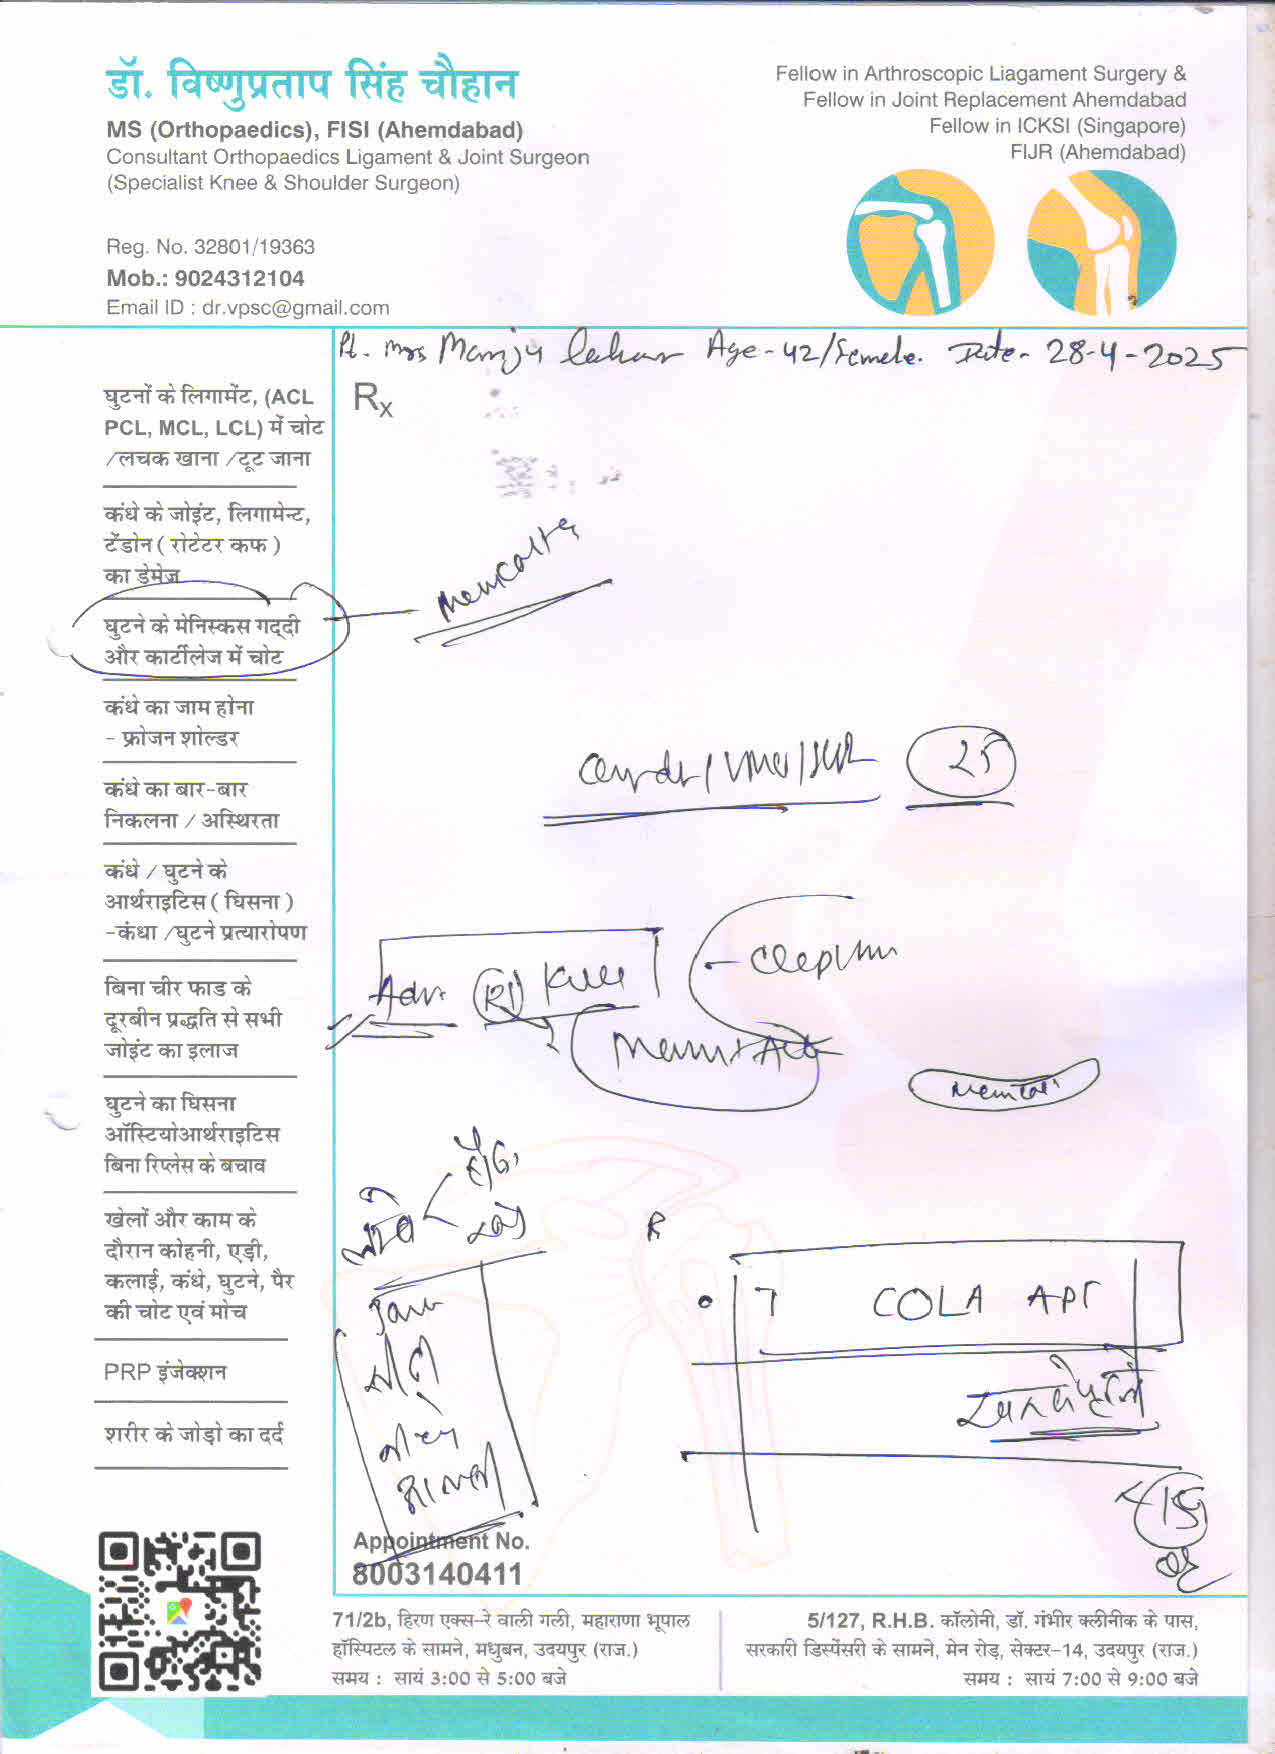 डॉ. विष्णुप्रताप सिंह चौहान
MS (Orthopaedics), FISI (Ahemdabad)
Consultant Orthopaedics Ligament & Joint Surgeon
(Specialist Knee & Shoulder Surgeon)
Reg. No. 32801/19363
Mob.: 9024312104
Email ID : dr.vpsc@gmail.com
Fellow in Arthroscopic Liagament Surgery &
Fellow in Joint Replacement Ahemdabad
Fellow in ICKSI (Singapore)
FIJR (Ahemdabad)
Pt. Mrs Manju Age - 42/Femele. Date - 28-4-2025
Rx
घुटनों के लिगामेंट, (ACL
PCL, MCL, LCL) में चोट
/लचक खाना /टूट जाना
कंधे के जोइंट, लिगामेन्ट,
टेंडोन ( रोटेटर कफ )
का डेमेज
घुटने के मेनिस्कस गद्दी
और कार्टीलेज में चोट
कंधे का जाम होना
- फ्रोजन शोल्डर
कंधे का बार-बार
निकलना / अस्थिरता
कंधे / घुटने के
आर्थराइटिस ( घिसना )
-कंधा /घुटने प्रत्यारोपण
बिना चीर फाड के
दूरबीन प्रद्धति से सभी
जोइंट का इलाज
घुटने का घिसना
ऑस्टियोआर्थराइटिस
बिना रिप्लेस के बचाव
खेलों और काम के
दौरान कोहनी, एड़ी,
कलाई, कंधे, घुटने, पैर
की चोट एवं मोच
PRP इंजेक्शन
शरीर के जोड़ो का दर्द
25
Adv. Rt Knee
R
T COLA APT
Appointment No.
8003140411
71/2b, हिरण एक्स-रे वाली गली, महाराणा भूपाल
हॉस्पिटल के सामने, मधुबन, उदयपुर (राज.)
समय : सायं 3:00 से 5:00 बजे
5/127, R.H.B. कॉलोनी, डॉ. गंभीर क्लीनीक के पास,
सरकारी डिस्पेंसरी के सामने, मेन रोड़, सेक्टर-14, उदयपुर (राज.)
समय : सायं 7:00 से 9:00 बजे